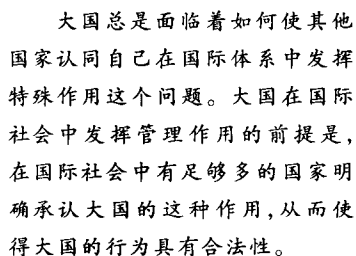 大国总是面临着如何使其他
国家认同自己在国际体系中发挥
特殊作用这个问题。大国在国际
社会中发挥管理作用的前提是,
在国际社会中有足够多的国家明
确承认大国的这种作用,从而使
得大国的行为具有合法性。